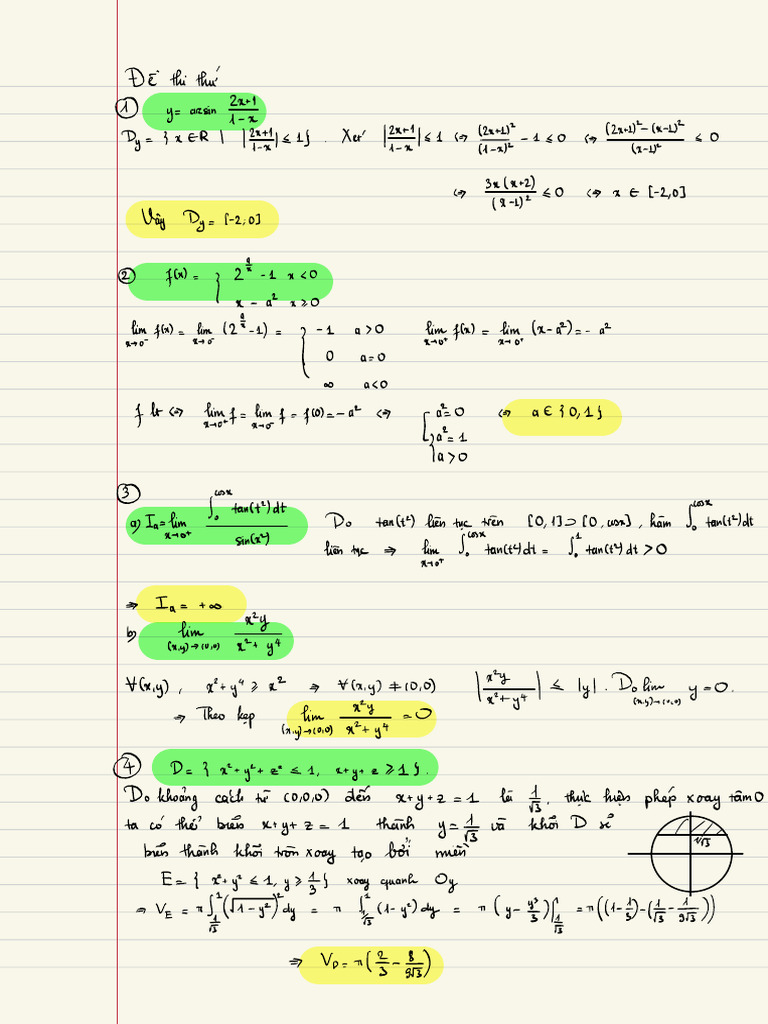 Đề thi thử
① y = arcsin (2x+1)/(1-x)
D_y = { x ∈ R | |(2x+1)/(1-x)| ≤ 1 } . Xét |(2x+1)/(1-x)| ≤ 1 ⇔ (2x+1)²/(1-x)² - 1 ≤ 0 ⇔ ((2x+1)² - (x-1)²)/(x-1)² ≤ 0
⇔ 3x(x+2)/(x-1)² ≤ 0 ⇔ x ∈ [-2,0]
Vậy D_y = [-2;0]
② f(x) = { 2^(a/x) - 1 x < 0
x - a² x ≥ 0
lim_{x→0⁻} f(x) = lim_{x→0⁻} (2^(a/x) - 1) = { -1 a > 0 lim_{x→0⁺} f(x) = lim_{x→0⁺} (x - a²) = - a²
0 a = 0
∞ a < 0
f lt ⇔ lim_{x→0⁺} f = lim_{x→0⁻} f = f(0) = -a² ⇔ [ a² = 0 ⇔ a ∈ {0,1}
{ a² = 1
a > 0
③
a) I_a = lim_{x→0⁺} ∫₀^{cosx} tan(t²)dt / sin(x²) Do tan(t²) liên tục trên [0,1] ⊃ [0, cosx], hàm ∫₀^{cosx} tan(t²)dt
liên tục ⇒ lim_{x→0⁺} ∫₀^{cosx} tan(t²)dt = ∫₀¹ tan(t²)dt > 0
⇒ I_a = +∞
b) lim_{(x,y)→(0,0)} x²y/(x² + y⁴)
∀(x,y), x² + y⁴ ≥ x² ⇒ ∀(x,y) ≠ (0,0) |x²y/(x² + y⁴)| ≤ |y| . Do lim_{(x,y)→(0,0)} y = 0.
⇒ Theo kẹp lim_{(x,y)→(0,0)} x²y/(x² + y⁴) = 0
④ D = { x² + y² + z² ≤ 1, x + y + z ≥ 1 }.
Do khoảng cách từ (0,0,0) đến x + y + z = 1 là 1/√3, thực hiện phép xoay tâm O
ta có thể biến x + y + z = 1 thành y = 1/√3 và khối D sẽ
1/√3
biến thành khối tròn xoay tạo bởi miền
E = { x² + y² ≤ 1, y ≥ 1/3 } xoay quanh Oy
⇒ V_E = π ∫_{1/√3}^1 (√(1-y²))² dy = π ∫_{1/√3}^1 (1-y²) dy = π (y - y³/3)|_{1/√3}^1 = π((1 - 1/3) - (1/√3 - 1/(9√3)))
⇒ V_D = π(2/3 - 8/(9√3))